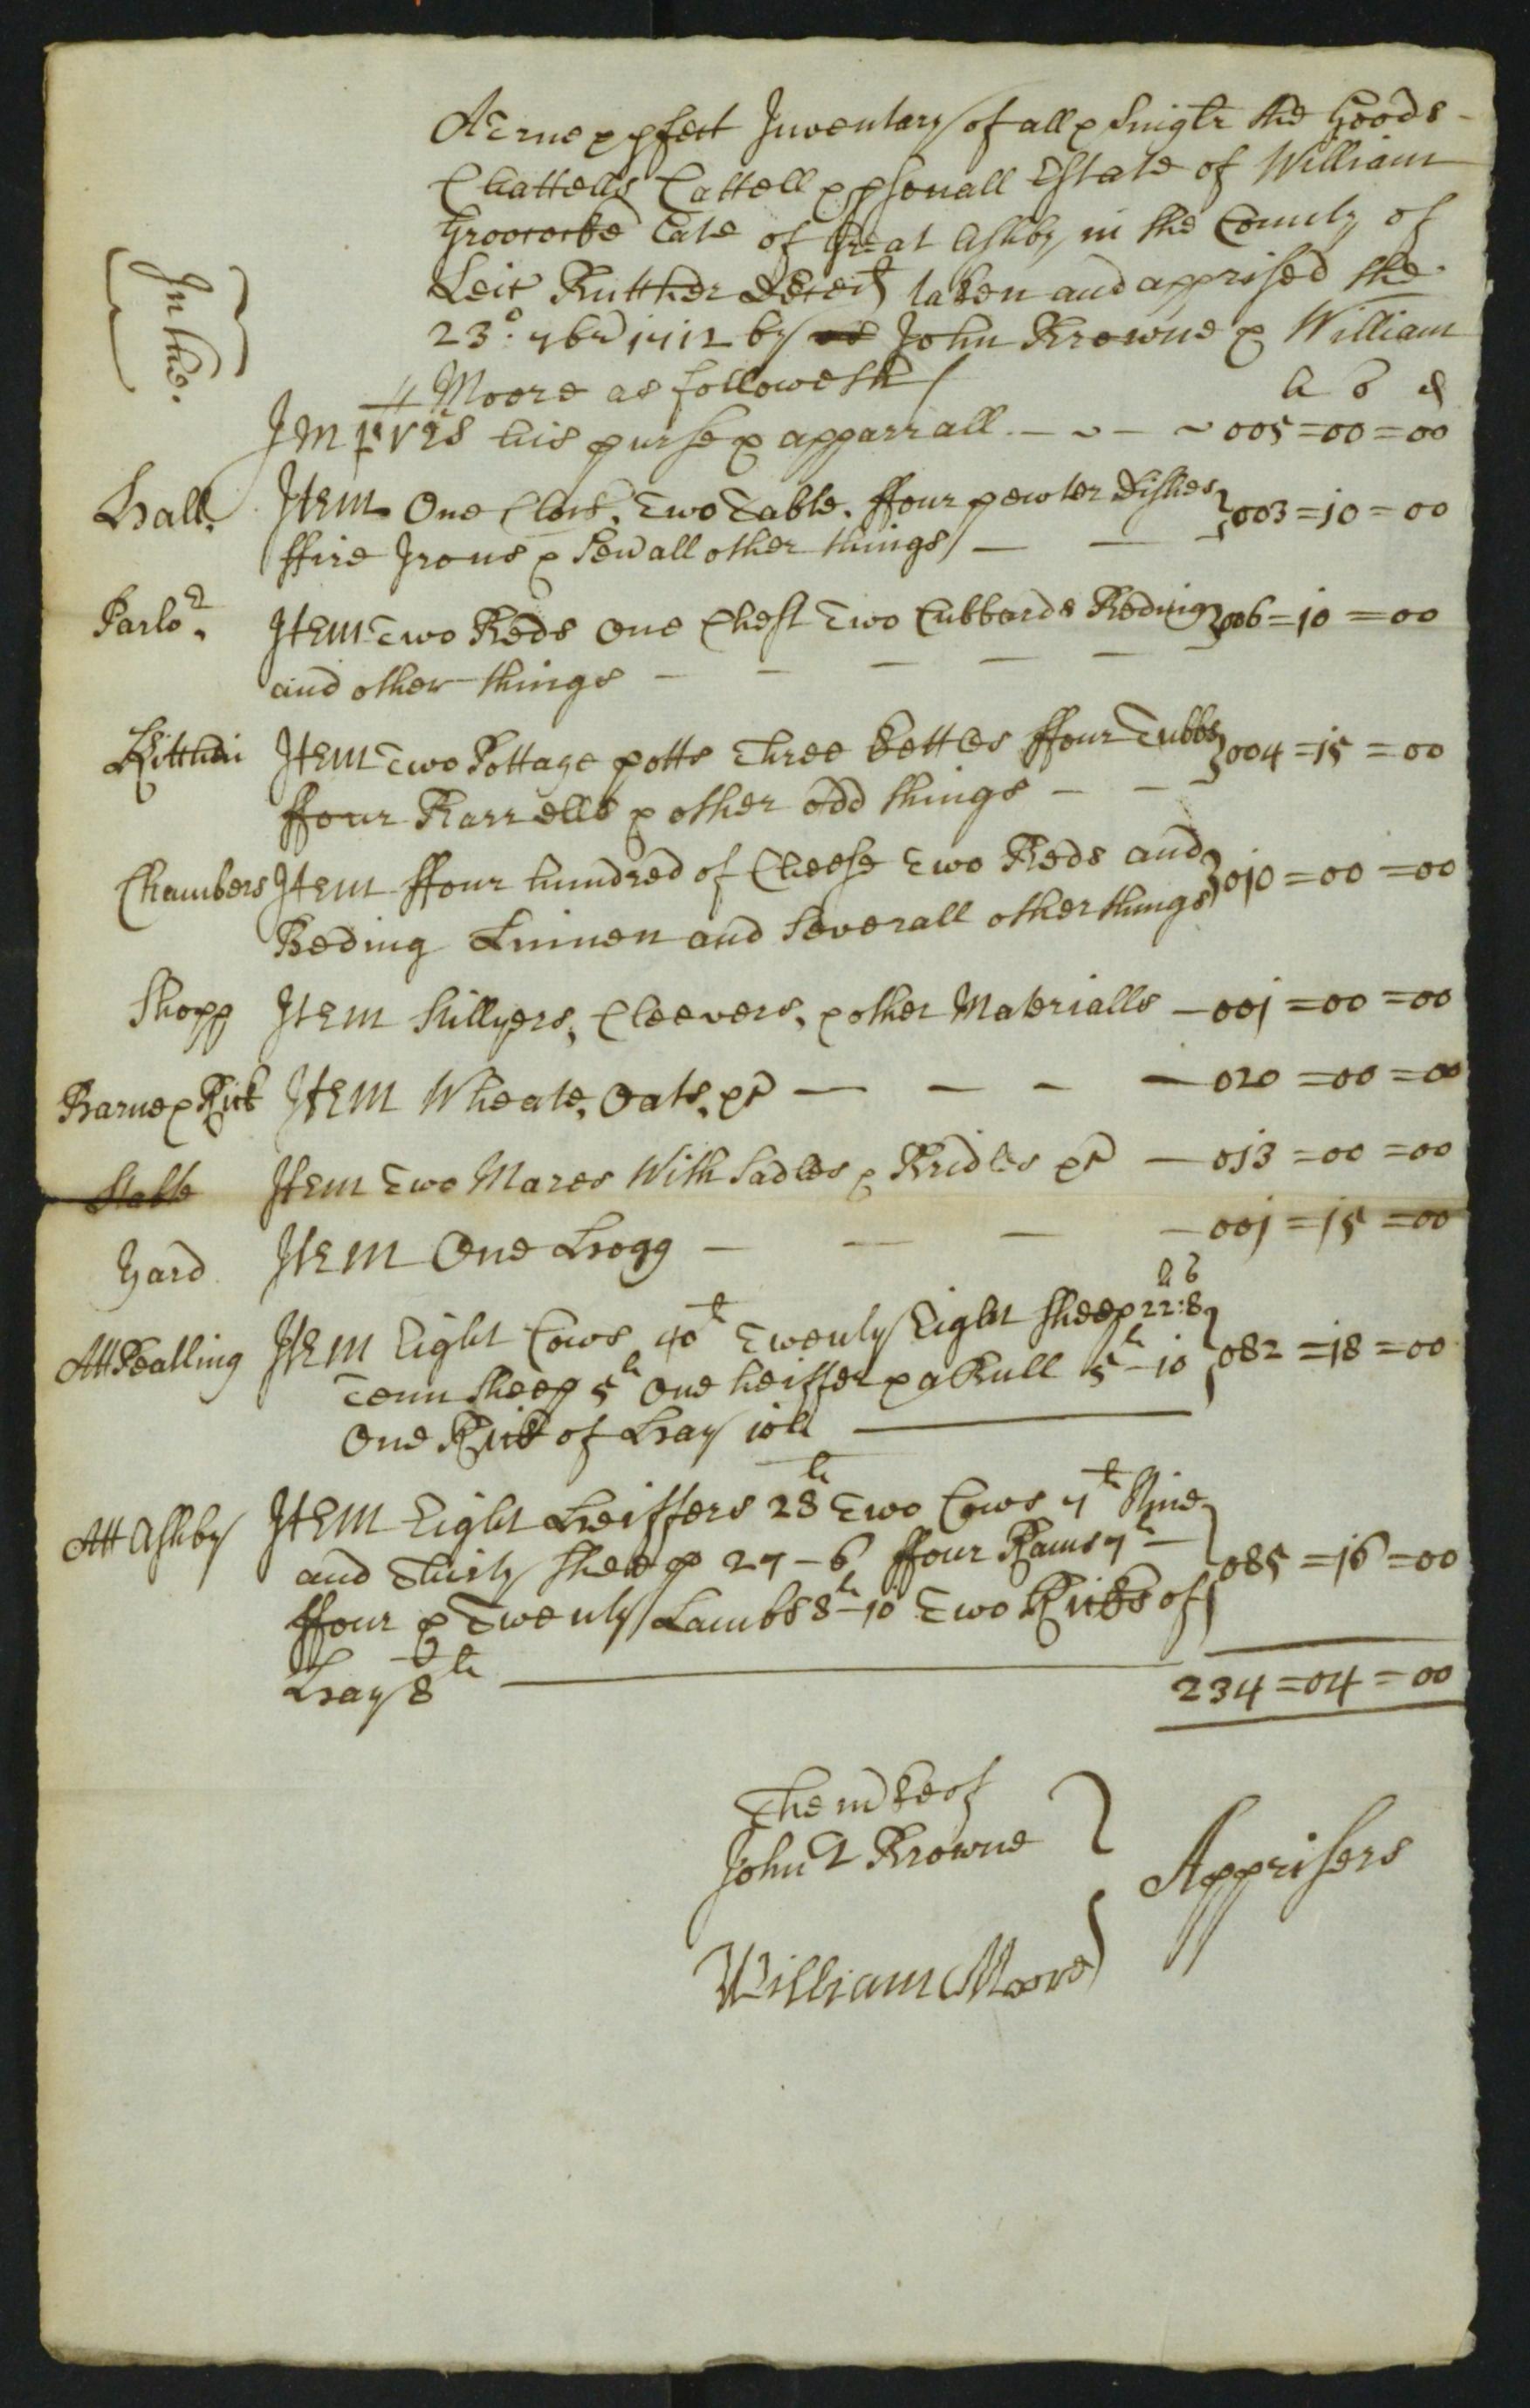 A True & pfect Inventary of all & Singlr the Goods
Chattells Cattell & psonall Estate of William
Groococke Late of Great Ashby in the County of
Leicr Buttcher Deced taken and apprised the
23º: 7br 1712 by John Browne & William
Moore as followeth
In the.
li s d
Imprs his purse & apparrall - ~ - ~ 005=00=00
Hall. Item One Clock, Two Table, ffour pewter Dishes
ffire Irons & Sevall other things — — 003=10=00
Parlor. Item Two Beds One Chest Two Cubbords Beding 006=10=00
and other things — — — — —
Kitthen Item Two Pottage potts Three kettles ffour Tubbs 004=15=00
ffour Barrells & other odd things — —
Chambers Item ffour hundred of Cheese Two Beds and 010=00=00
Beding Linnen and Severall other things
Shopp Item Stillyers, Cleevers, & other Materialls — 001=00=00
Barne & Rick Item Wheate, Oats, &c — — — — 020=00=00
Stable Item Two Mares With Sadles & Bridles &c — 013=00=00
Yard Item One Hogg — — — — 001=15=00
li s
Att Pealling Item Eight Cows 40li Twenty Eight Sheep 22:8
Tenn Sheep 5li One heiffer & a Bull 5li-10 082=18=00
One Rick of Hay 10li
Att Ashby Item Eight Heiffers 28li Two Cows 7li Nine
and Thirty Sheep 27-6 ffour Rams 7li — 085=16=00
ffour & Twenty Lambs 8li-10 Two Ricks of
Hay 8li
234=04=00
The mke of
John Browne
Apprisers
William Moore